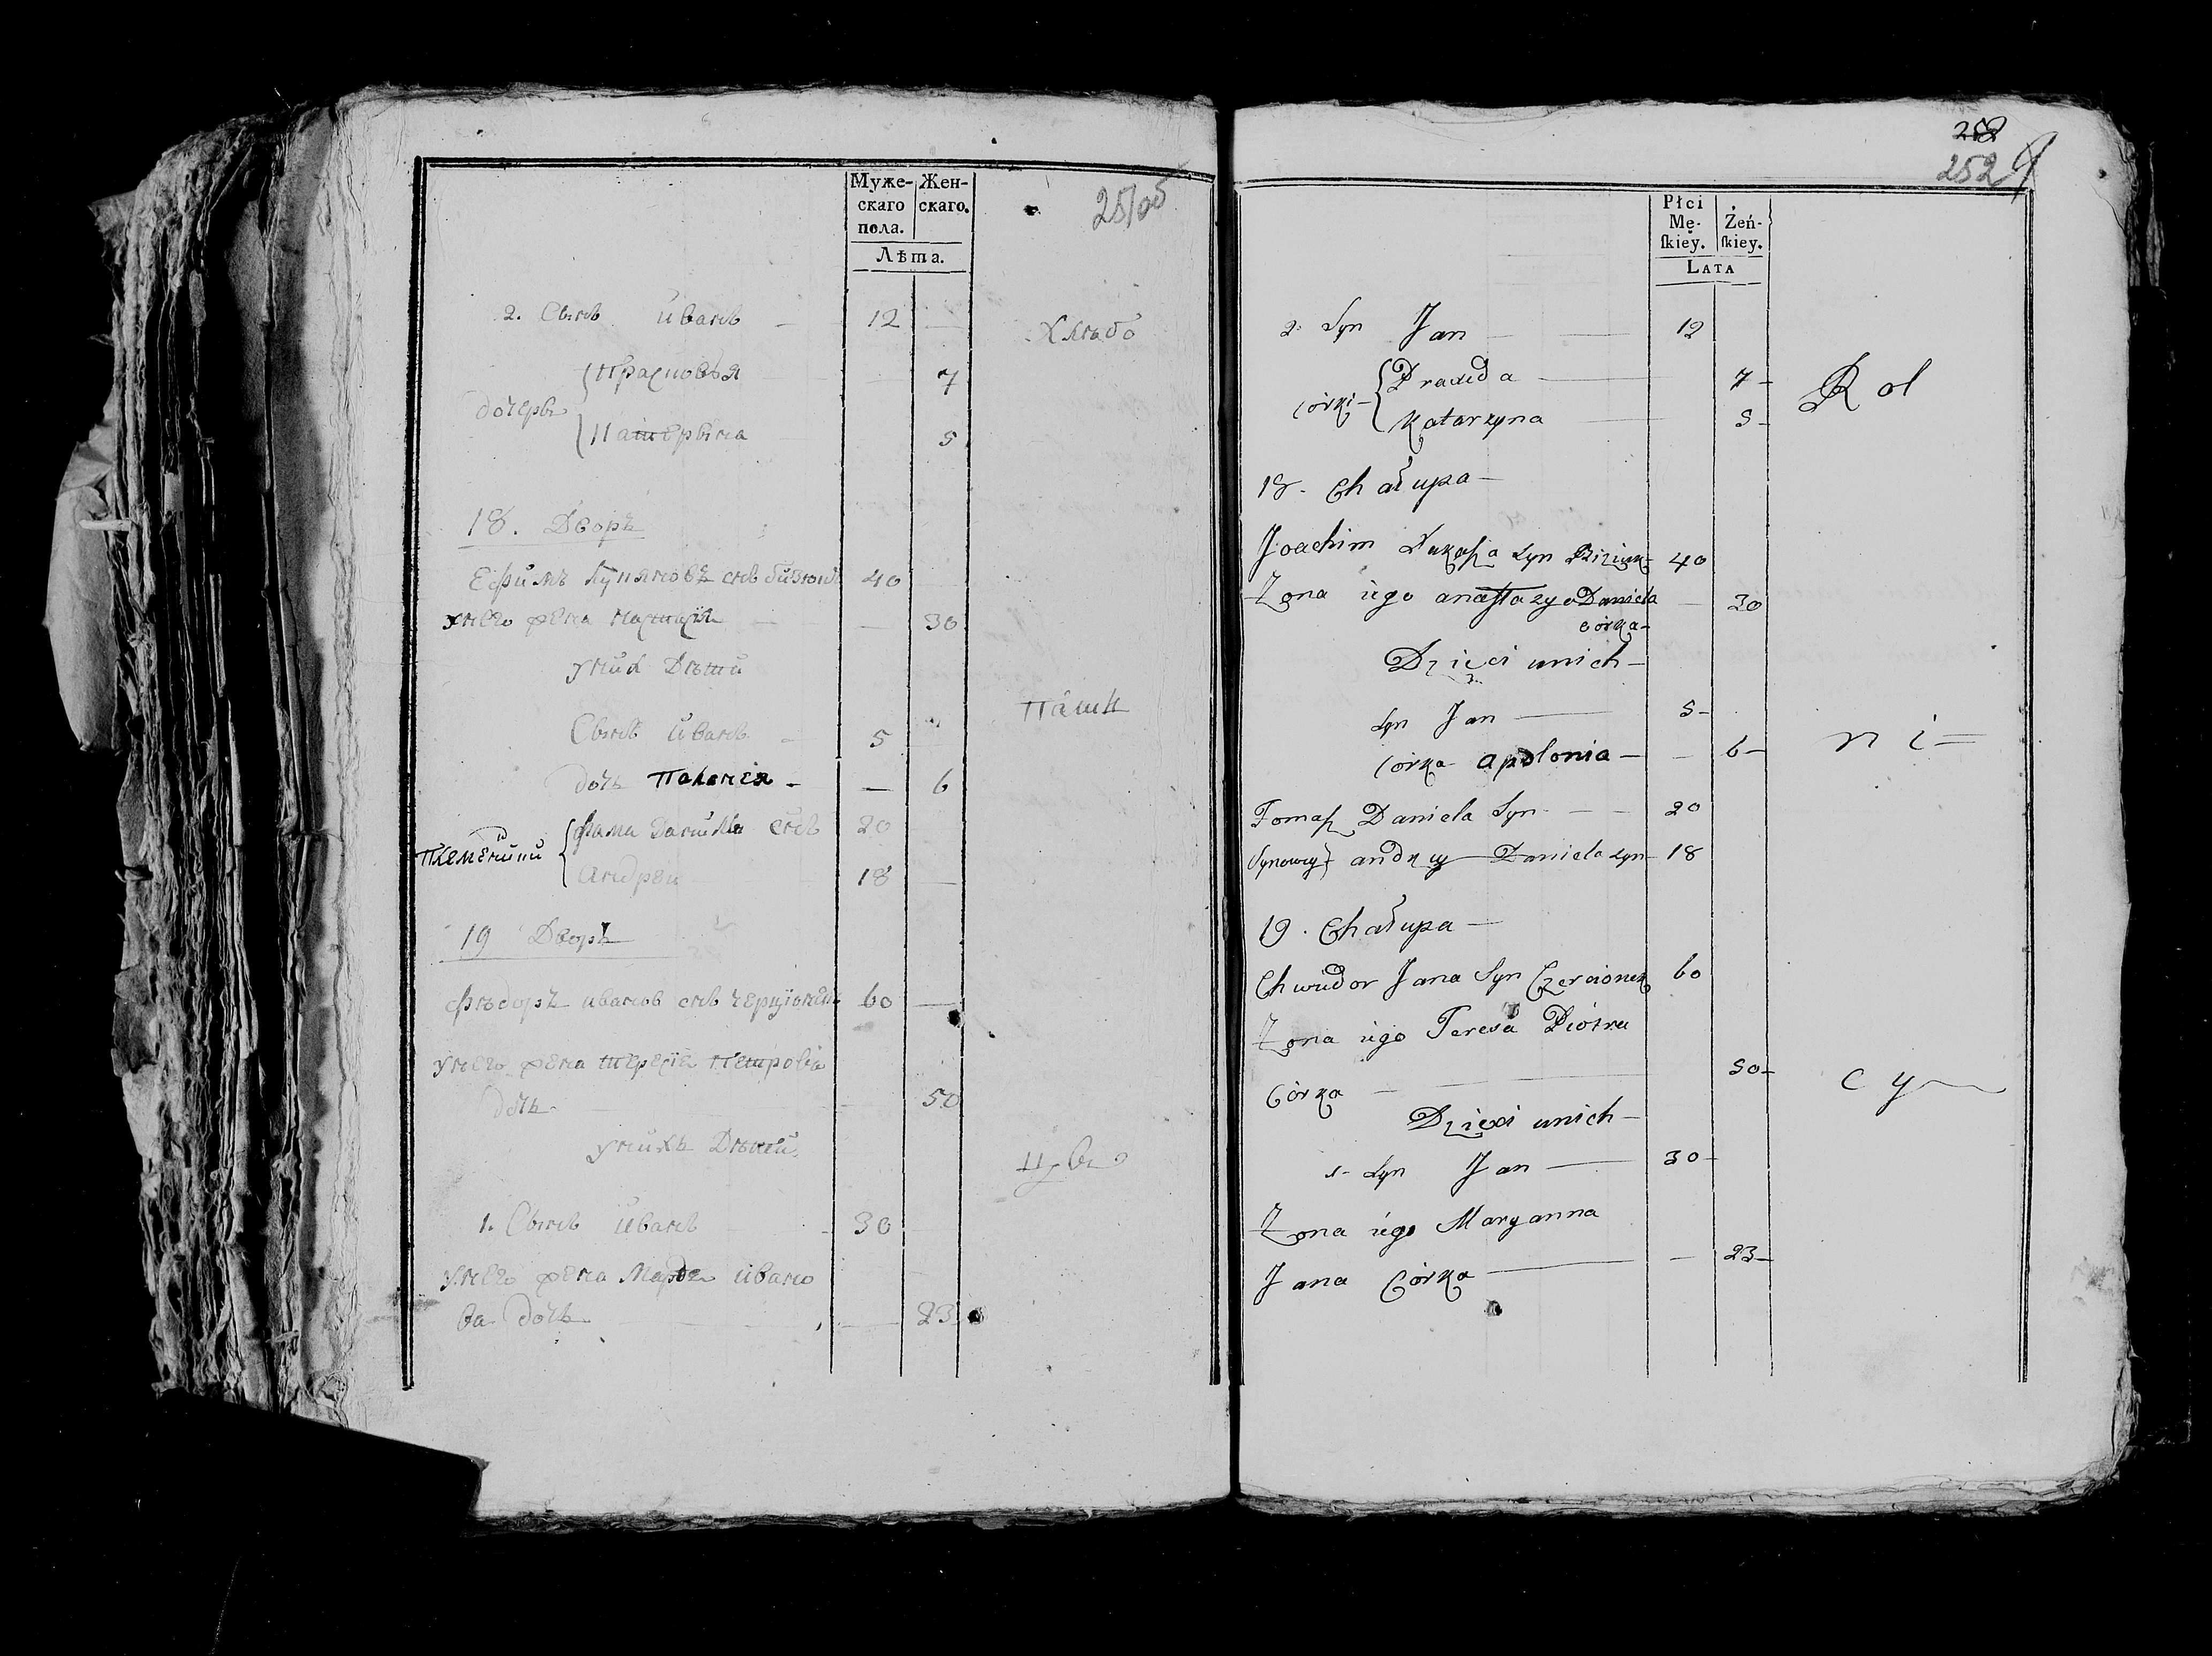 251об
Муже-
скаго
пола.
Жен-
скаго.
Лѣта.
2. Сынъ Иванъ — 12 —
Хлѣбо
дочеры { Прасковья 7
Катерына 5
18. Дворъ
Ефимъ Лукяновъ снъ 40
унего жена Настасія — — 30
уних Дѣти
Сынъ Иванъ — 5
Паш
дочь Полонея — — 6
Племеники { Фама Данила снъ 20
Андреи 18 —
19 Дворъ
Фѣдоръ Ивановъ снъ 60 —
унего жена Тересія Петрова
дочь — 50
унихъ Дѣти
цы
1. Сынъ Иванъ 30
унего жена Ивано
ва дочь 23
252
252
Płci
Mę-
ſkiéy.
Żeń-
ſkiey.
LATA
2. Syn Jan — — 12
Corki — { Praxeda — 7 —
Katarzyna — 5 —
Rol
18. Chałupa —
Joachim Łukaſza Syn 40
Żona iego anaſtazya Daniela — 30
corka —
Dzieci unich —
Syn Jan — 5 —
Corka apolonia — — 6 —
ni =
Tomaſz Daniela Syn — — 20
Synowcy } andrzey Daniela syn — 18
19. Chałupa —
Chwiedor Jana Syn 60
Żona iego Teresa Piotra
Córka — — 50 —
cy —
Dzieci unich —
1. Syn Jan — 30 —
Żona iego Maryanna
Jana Córka — — 23 —